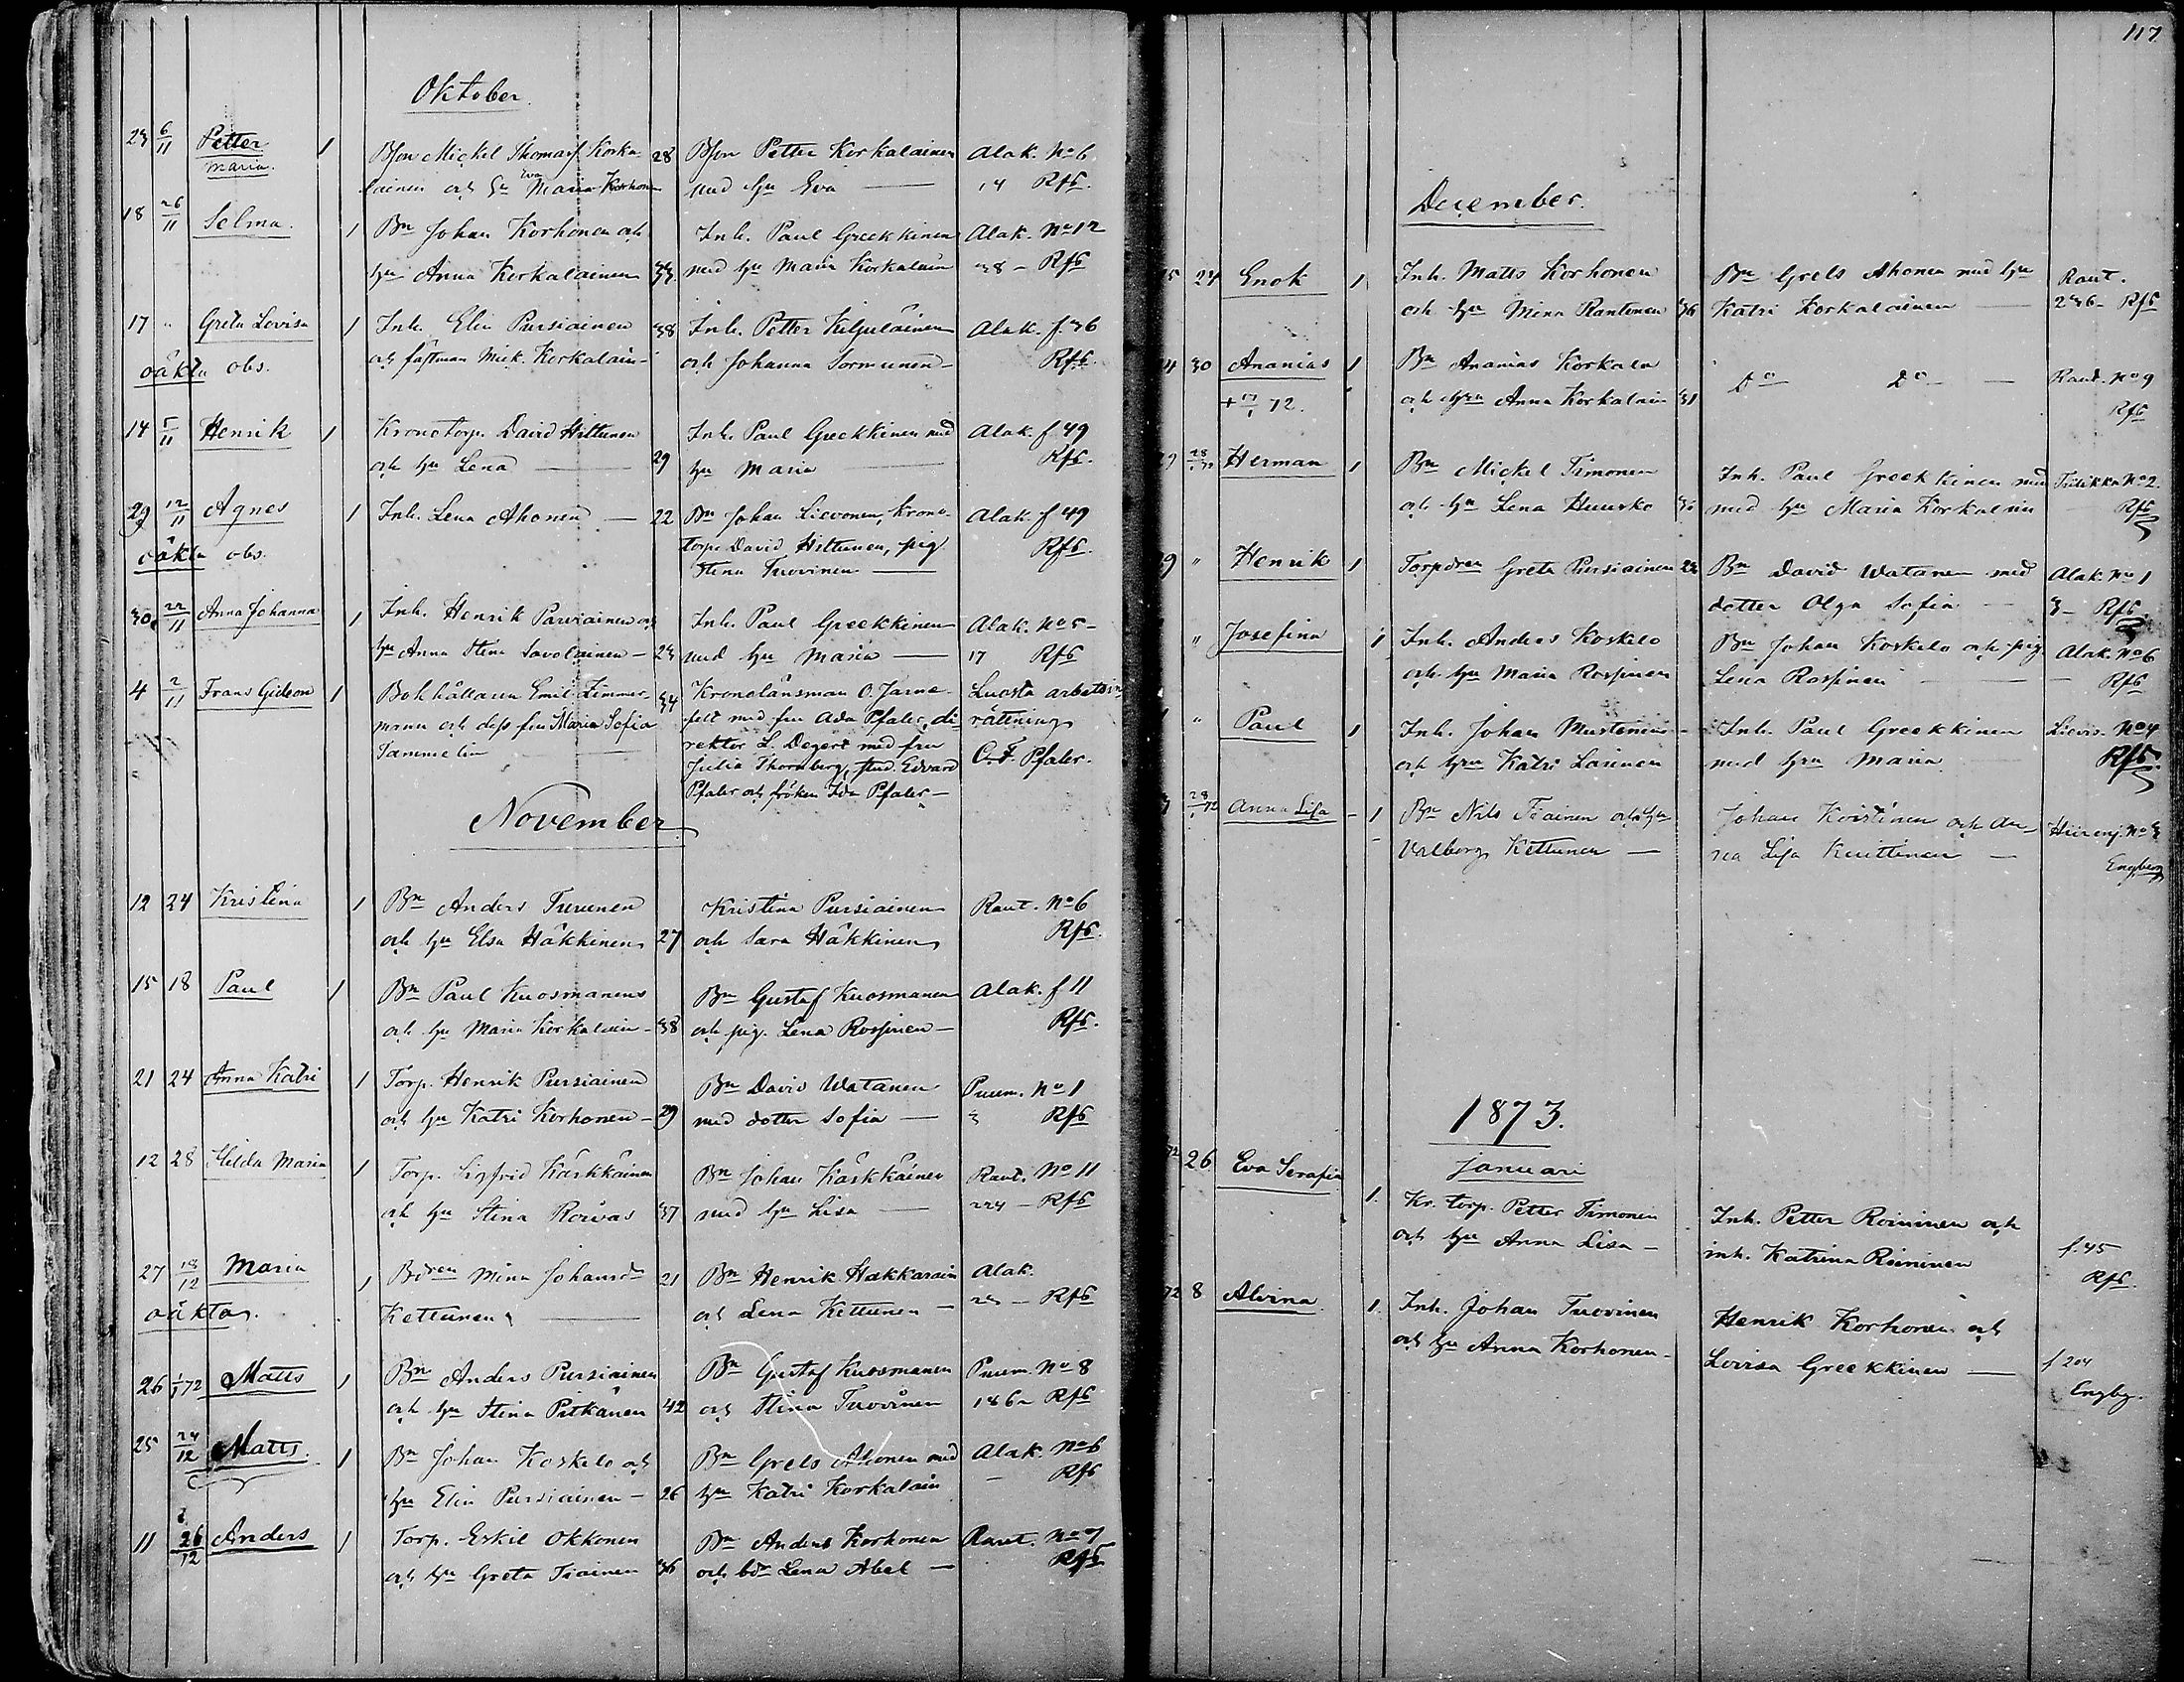 Oktober.
23 6/11 Petter 1 Bson Mickel Thomass. Korka- 28 Bson Petter Korkalainen Alak. No 6
Maria. lainen och h:u Eva Maria Korhonen med h:u Eva — 14 Rfs.
18 26/11 Selma. 1 B:n Johan Korhonen och Inh. Paul Greekkinen Alak. No 12
h:u Anna Korkalainen 33. med h:u Maria Korkalain 38 – Rfs
17 " Greta Lovisa 1 Inh. Elin Pursiainen 38 Inh. Petter Kiljuläinen Alak. f. 36
oäkta obs. och fästman Mick. Korkalain- och Johanna Sormunen- Rfs.
14 5/11 Henrik 1 Kronotorp. David Hiltunen Inh. Paul Greekkinen med Alak. f 49
och h:u Lena — 29 h:u Maria — Rfs.
29 12/11 Agnes 1 Inh. Lena Ahonen — 22 B:n Johan Lievonen, Krono- Alak. f 49
oäkta obs. torp. David Hiltunen, pig. Rfs.
Stina Tuovinen —
30 22/11 Anna Johanna 1 Inh. Henrik Parviainen och Inh. Paul Greekkinen Alak. No 5 –
h:u Anna Stina Savolainen – 23 med h:u Maria — 17 Rfs
4 2/11 Frans Gideon 1 Bokhållaren Emil Zimmer- 34 Kronolänsman O. Jarne- Luosta arbetsin-
mann och dess fru Maria Sofia felt med fru Ada Pfaler, di- rättning
Sammelin rektor L. Degert med fru C. F. Pfaler.
Julia Thornberg, stud. Edvard
Pfaler och fröken Ida Pfaler –
November
12 24 Kristina 1 B:n Anders Turunen Kristina Pursiainen Raut. No 6
och h:u Elsa Häkkinen 27 och Sara Häkkinen Rfs.
15 18 Paul 1 B:n Paul Kuosmanen B:n Gustaf Kuosmanen Alak. f 11
och h:u Maria Korkalain – 38 och pig. Lena Rossinen – Rfs.
21 24 Anna Katri 1 Torp. Henrik Pursiainen B:n David Watanen Puum. No 1
och h:u Katri Korhonen – 29 med dotter Sofia — 3 Rfs
12 28 Hilda Maria 1 Torp. Sigfrid Kärkkäinen B:n Johan Kärkkäinen Raut. No 11
och h:u Stina Roivas 37 med h:u Lisa — 224 – Rfs
27 18/12 Maria 1 Bdren Mina Johansd:r 21 B:n Henrik Hakkarain Alak.
oäkta. Kettunen — och Lena Kettunen – 23 – Rfs
26 1/1 72 Matts 1 B:n Anders Pursiainen B:n Gustaf Kuosmanen Puum. No 8
och h:u Stina Pitkänen 42 och Stina Tuovinen 186 – Rfs
25 24/12 Matts. 1 B:n Johan Koskelo och B:n Grels Ahonen med Alak. No 6
h:u Elin Pursiainen – 26 h:u Katri Korkalain Rfs
11 26/12 Anders 1 Torp. Eskil Okkonen B:n Anders Korhonen Raut. No 7
och h:u Greta Tiainen 36 och bdr Lena Abel — Rfs
117
December.
5 24 Enok 1 Inh. Matts Korhonen B:n Grels Ahonen med h:u Raut.
och h:u Mina Rantonen 36 Katri Korkalainen — 236 – Rfs
4 30 Ananias 1 B:n Ananias Korkala D:o D:o — Raut. No 9
+ 17/1 72. och h:u Anna Korkalain 31 Rfs
28/1 72 Herman 1 B:n Mickel Timonen Inh. Paul Greekkinen med Tulikka No 2.
och h:u Lena Huusko med h:u Maria Korkalain Rfs
9 " Henrik 1 Torpdren Greta Pursiainen 22 B:n David Watanen med Alak. No 1
dotter Olga Sofia — 3 – Rfs
" Josefina 1 Inh. Anders Koskelo B:n Johan Koskelo och pig. Alak. No 6
och h:u Maria Rossinen Lena Rossinen — Rfs
" Paul 1 Inh. Johan Mustonen Inh. Paul Greekkinen Lievis. No 4
och h:u Katri Larinen med h:u Maria Rfs.
28/1 72 Anna Lisa – 1 B:n Nils Tiainen och h:u Johan Koistinen och An- Hiirenj. No 3
Valborg Kettunen — na Lisa Knuttinen — Engberg
1873.
Januari
26 Eva Serafia 1. Kr. torp. Petter Timonen Inh. Petter Roininen och
och h:u Anna Lisa – inh. Katrina Roininen f. 45
Rfs.
72 8 Alvina 1. Inh. Johan Tuovinen Henrik Korhonen och
och h:u Anna Korhonen – Lovisa Greekkinen — f 204
Engbg.